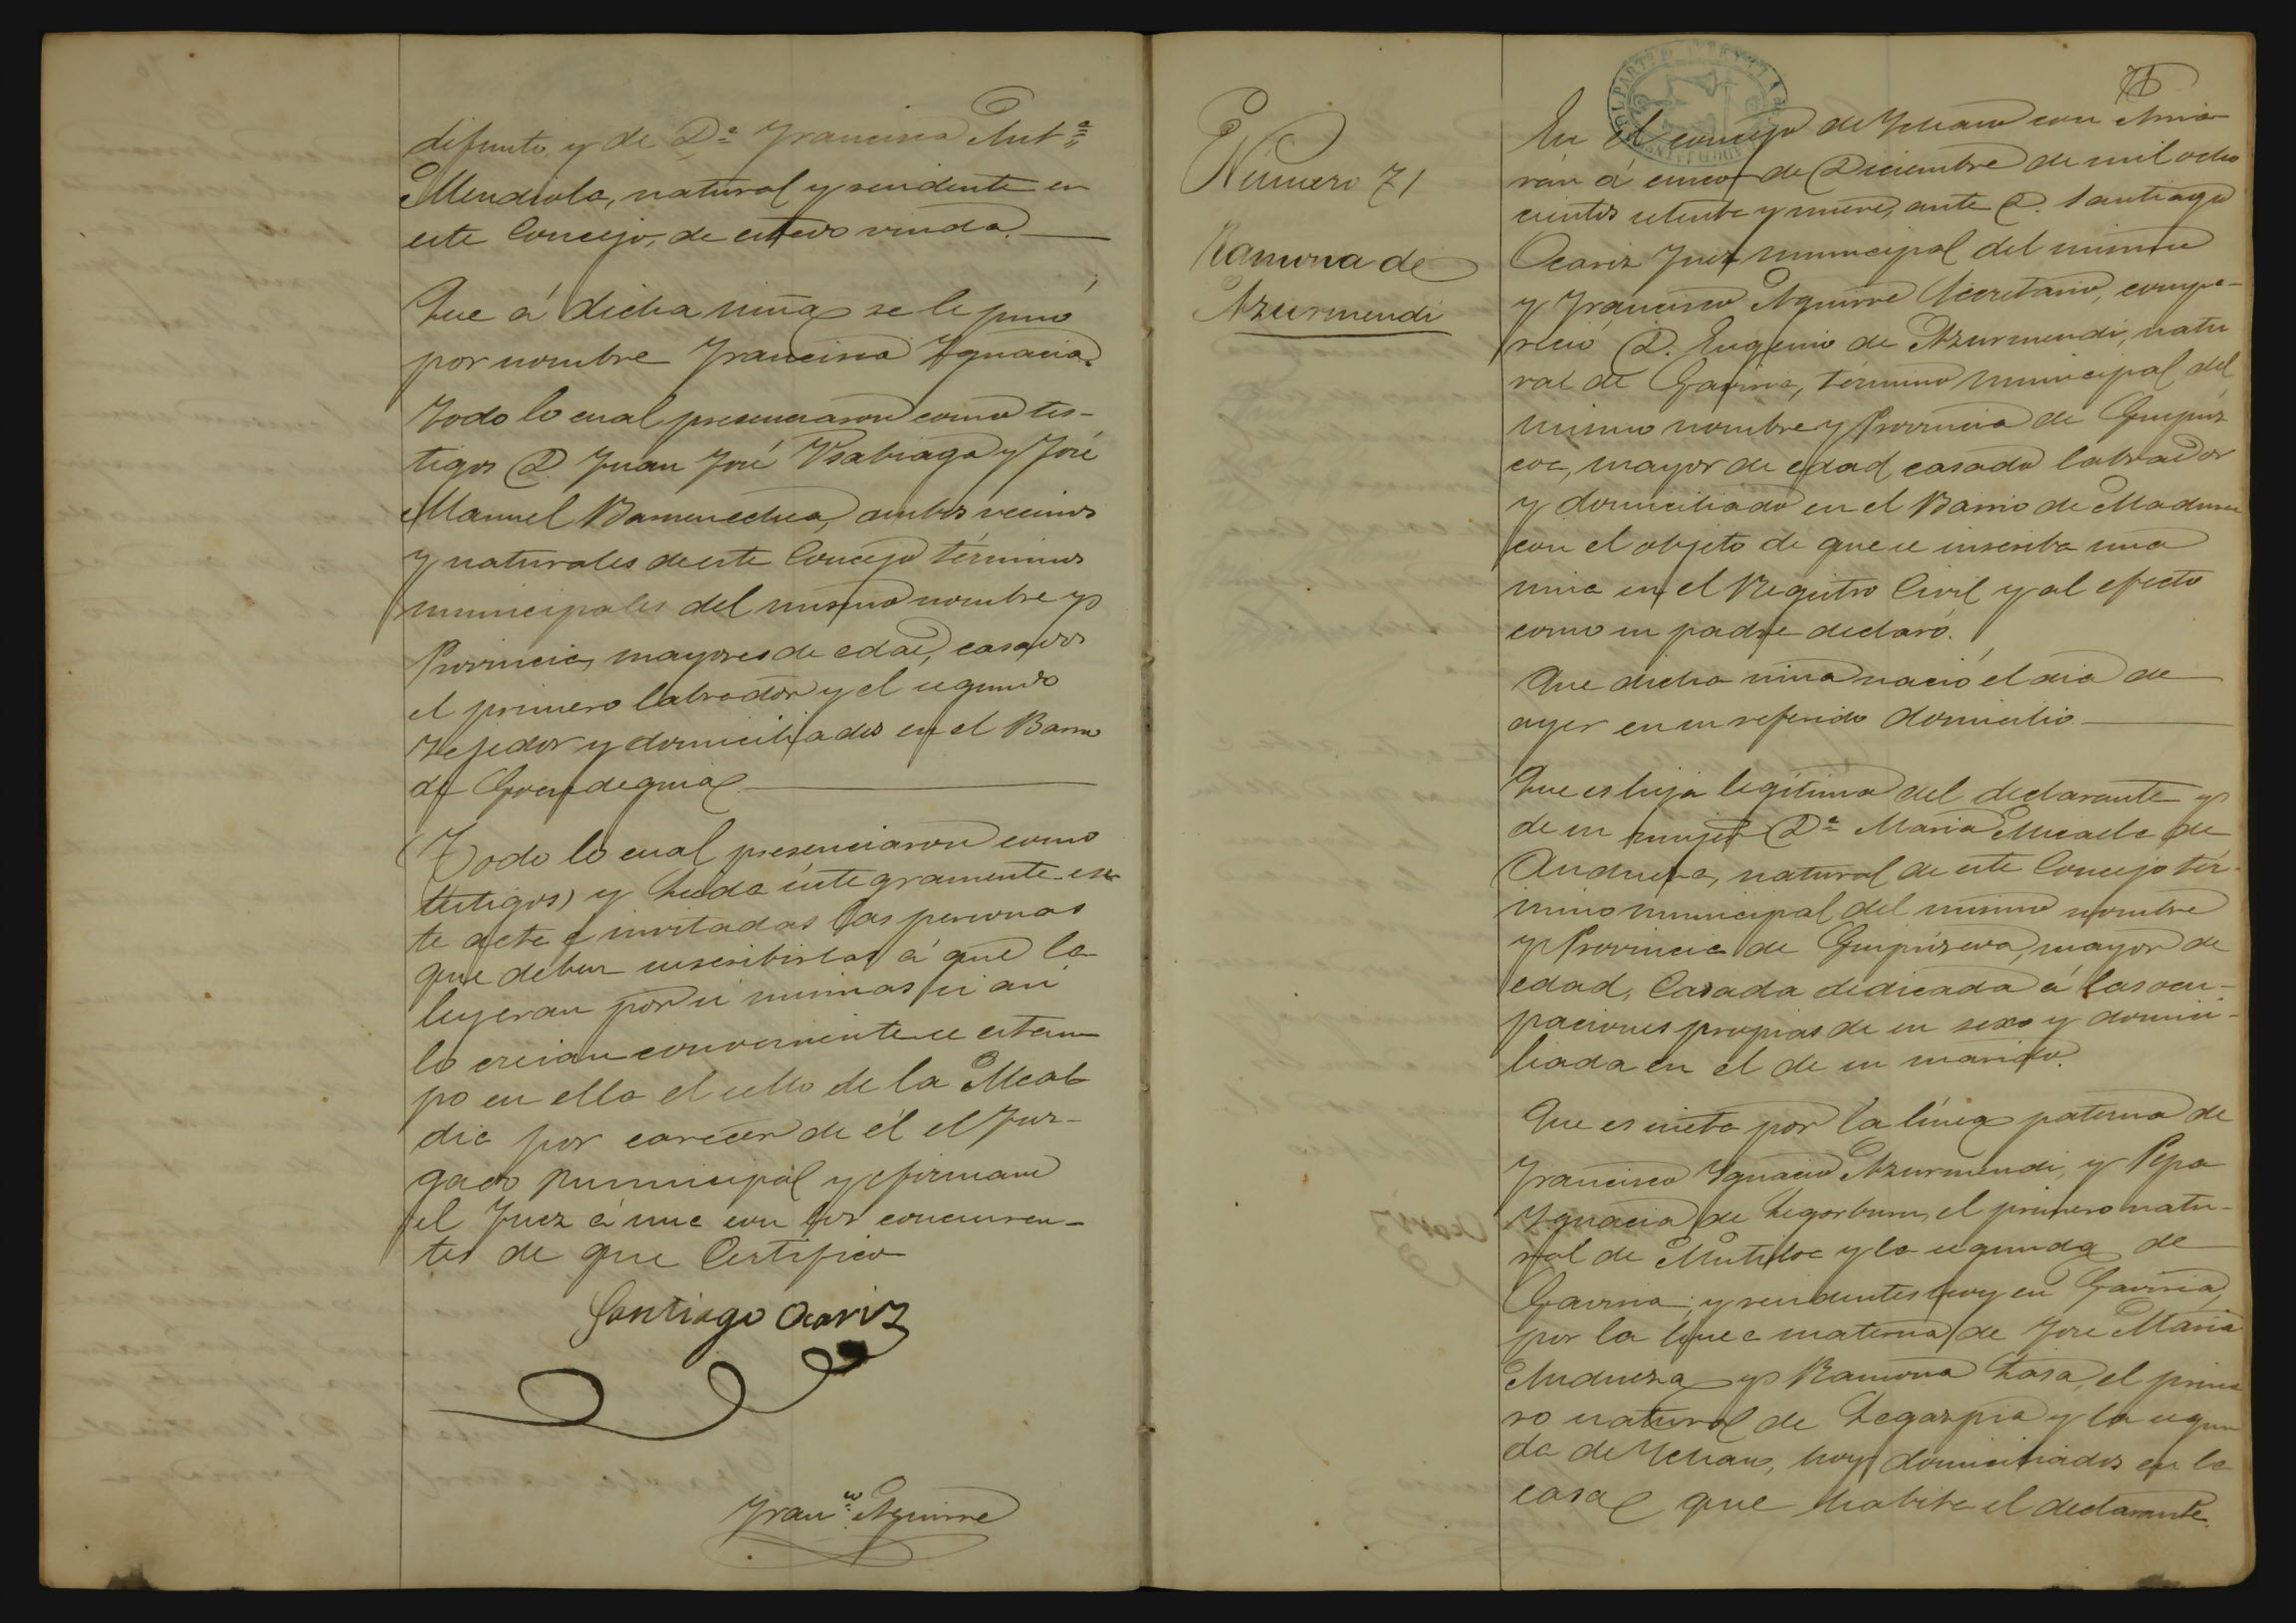 difunto, y de D.ª Francisca Ant.ª
Mendiola, natural y residente en
este Concejo, de estado viuda.
Que á dicha niña se le puso
por nombre Francisca Ygnacia.
Todo lo cual presenciaron como tes-
tigos D. Juan José Ysabiaga y José
Manuel Barrenechea, ambos vecinos
y naturales de este Concejo términos
municipales del mismo nombre y
Provincia, mayores de edad, casados
el primero labrador y el segundo
tejedor y domiciliados en el Barrio
de
(Todo lo cual presenciaron como
testigos) y Leida integramente es-
te acta é invitadas las personas
que deben suscribirlas á que la
leyeran por si mismas si asi
lo creian conveniente se estam
po en ella el sello de la Alcal
dia por carecer de él el Juz-
gado municipal y firmaron
el Juez
con los concurren-
tes de que Certifico
Santiago Ocariz
Fran.co Aguirre
71
Número 71
Ramona de
Azurmendi
En el concejo de Ydiazabal con
á cinco de Diciembre de mil ocho
cientos setenta y nueve, ante D. Santiago
Ocariz Juez municipal del mismo
y Francisco Aguirre Secretario, compa-
reció D. Eugenio de Azurmendi, natu
ral de Gaviria, término municipal del
mismo nombre y Provincia de Guipúz
coa, mayor de edad, casado labrador
y domiciliado en el Barrio de
con el objeto de que se inscriba una
niña en el Registro Civil y al efecto
como su padre declaró.
Que dicha niña nació el dia de
ayer en su referido domicilio
Que es hija legítima del declarante y
de su mujer D.ª Maria Micaela de
Andueza, natural de este Concejo tér-
mino municipal del mismo nombre
y Provincia de Guipúzcoa, mayor de
edad, Casada dedicada á las ocu-
paciones propias de su sexo y domici-
liada en el de su marido.
Que es nieta por la línea paterna de
Francisco Ygnacio Azurmendi, y Pepa
Ygnacia de Legorburu, el primero natu-
ral de Mutiloa y la segunda de
Gaviria, y residentes hoy en Gaviria,
por la linea materna de José Maria
Andueza y Ramona Lasa, el prime
ro natural de Legazpia y la segun
da de
hoy domiciliados en la
casa que habita el declarante.